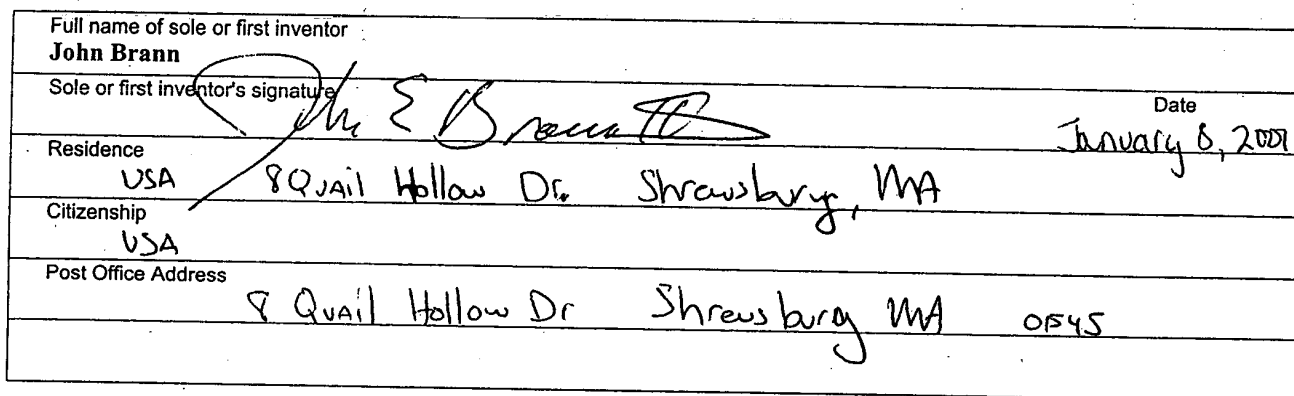 Full name of sole or first inventor
John Brann
Sole or first inventor's signature
John E Brann III
Date
January 8, 2001
Residence
USA 8 Quail Hollow Dr. Shrewsbury, MA
Citizenship
USA
Post Office Address
8 Quail Hollow Dr Shrewsbury MA 01545